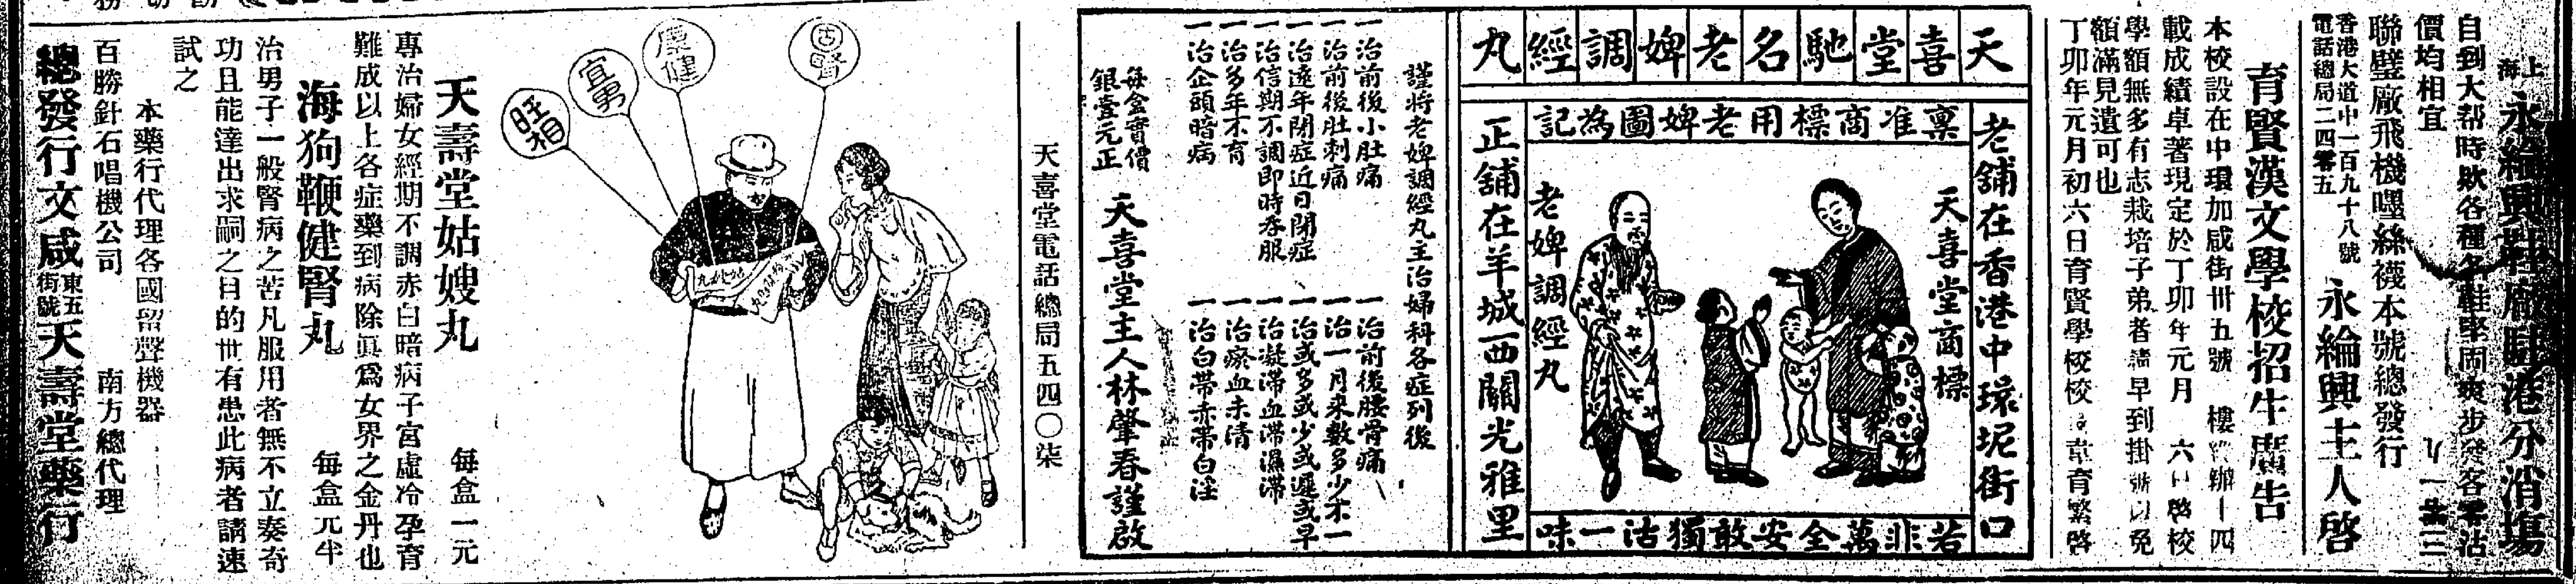 上海永綸興鞋廠駐港分消塲
自到大帮時欵各種各鞋堅固爽步發客零沽
價均相宜
聯璧廠飛機嘜絲襪本號總發行
香港大道中一百九十八號
電話總局二四零五
永綸興主人啓
育賢漢文學校招生廣告
本校設在中環加咸街卅五號 樓 辦十四
載成績卓著現定於丁卯年元月 六日啓校
學額無多有志栽培子弟者請早到掛號以免
額滿見遺可也
丁卯年元月初六日育賢學校校 育繁啓
天喜堂馳名老婢調經丸
稟准商標用老婢圖為記
老舖在香港中環坭街口
天喜堂商標
老婢調經丸
正舖在羊城西關光雅里
若非萬全安敢獨沽一味
謹將老婢調經丸主治婦科各症列後
一治前後小肚痛
一治前後腰骨痛
一治前後肚刺痛
一治一月來數多少不一
一治遠年閉症近日閉症
一治或多或少或遲或早
一治信期不調即時吞服
一治凝滯血滯濕滯
一治多年不育
一治瘀血未清
一治企頭暗病
一治白帶赤帶白淫
每盒實價
銀壹元正
天喜堂主人林肇春謹啟
天喜堂電話總局五四〇柒
固腎
壯健
宜男
旺相
天壽堂姑嫂丸
每盒一元
專治婦女經期不調赤白暗病子宮虛冷孕育
難成以上各症藥到病除眞爲女界之金丹也
海狗鞭健腎丸
每盒元半
治男子一般腎病之苦凡服用者無不立奏奇
功且能達出求嗣之目的世有患此病者請速
試之
本藥行代理各國留聲機器
百勝針石唱機公司
南方總代理
總發行文咸東街五號天壽堂藥行